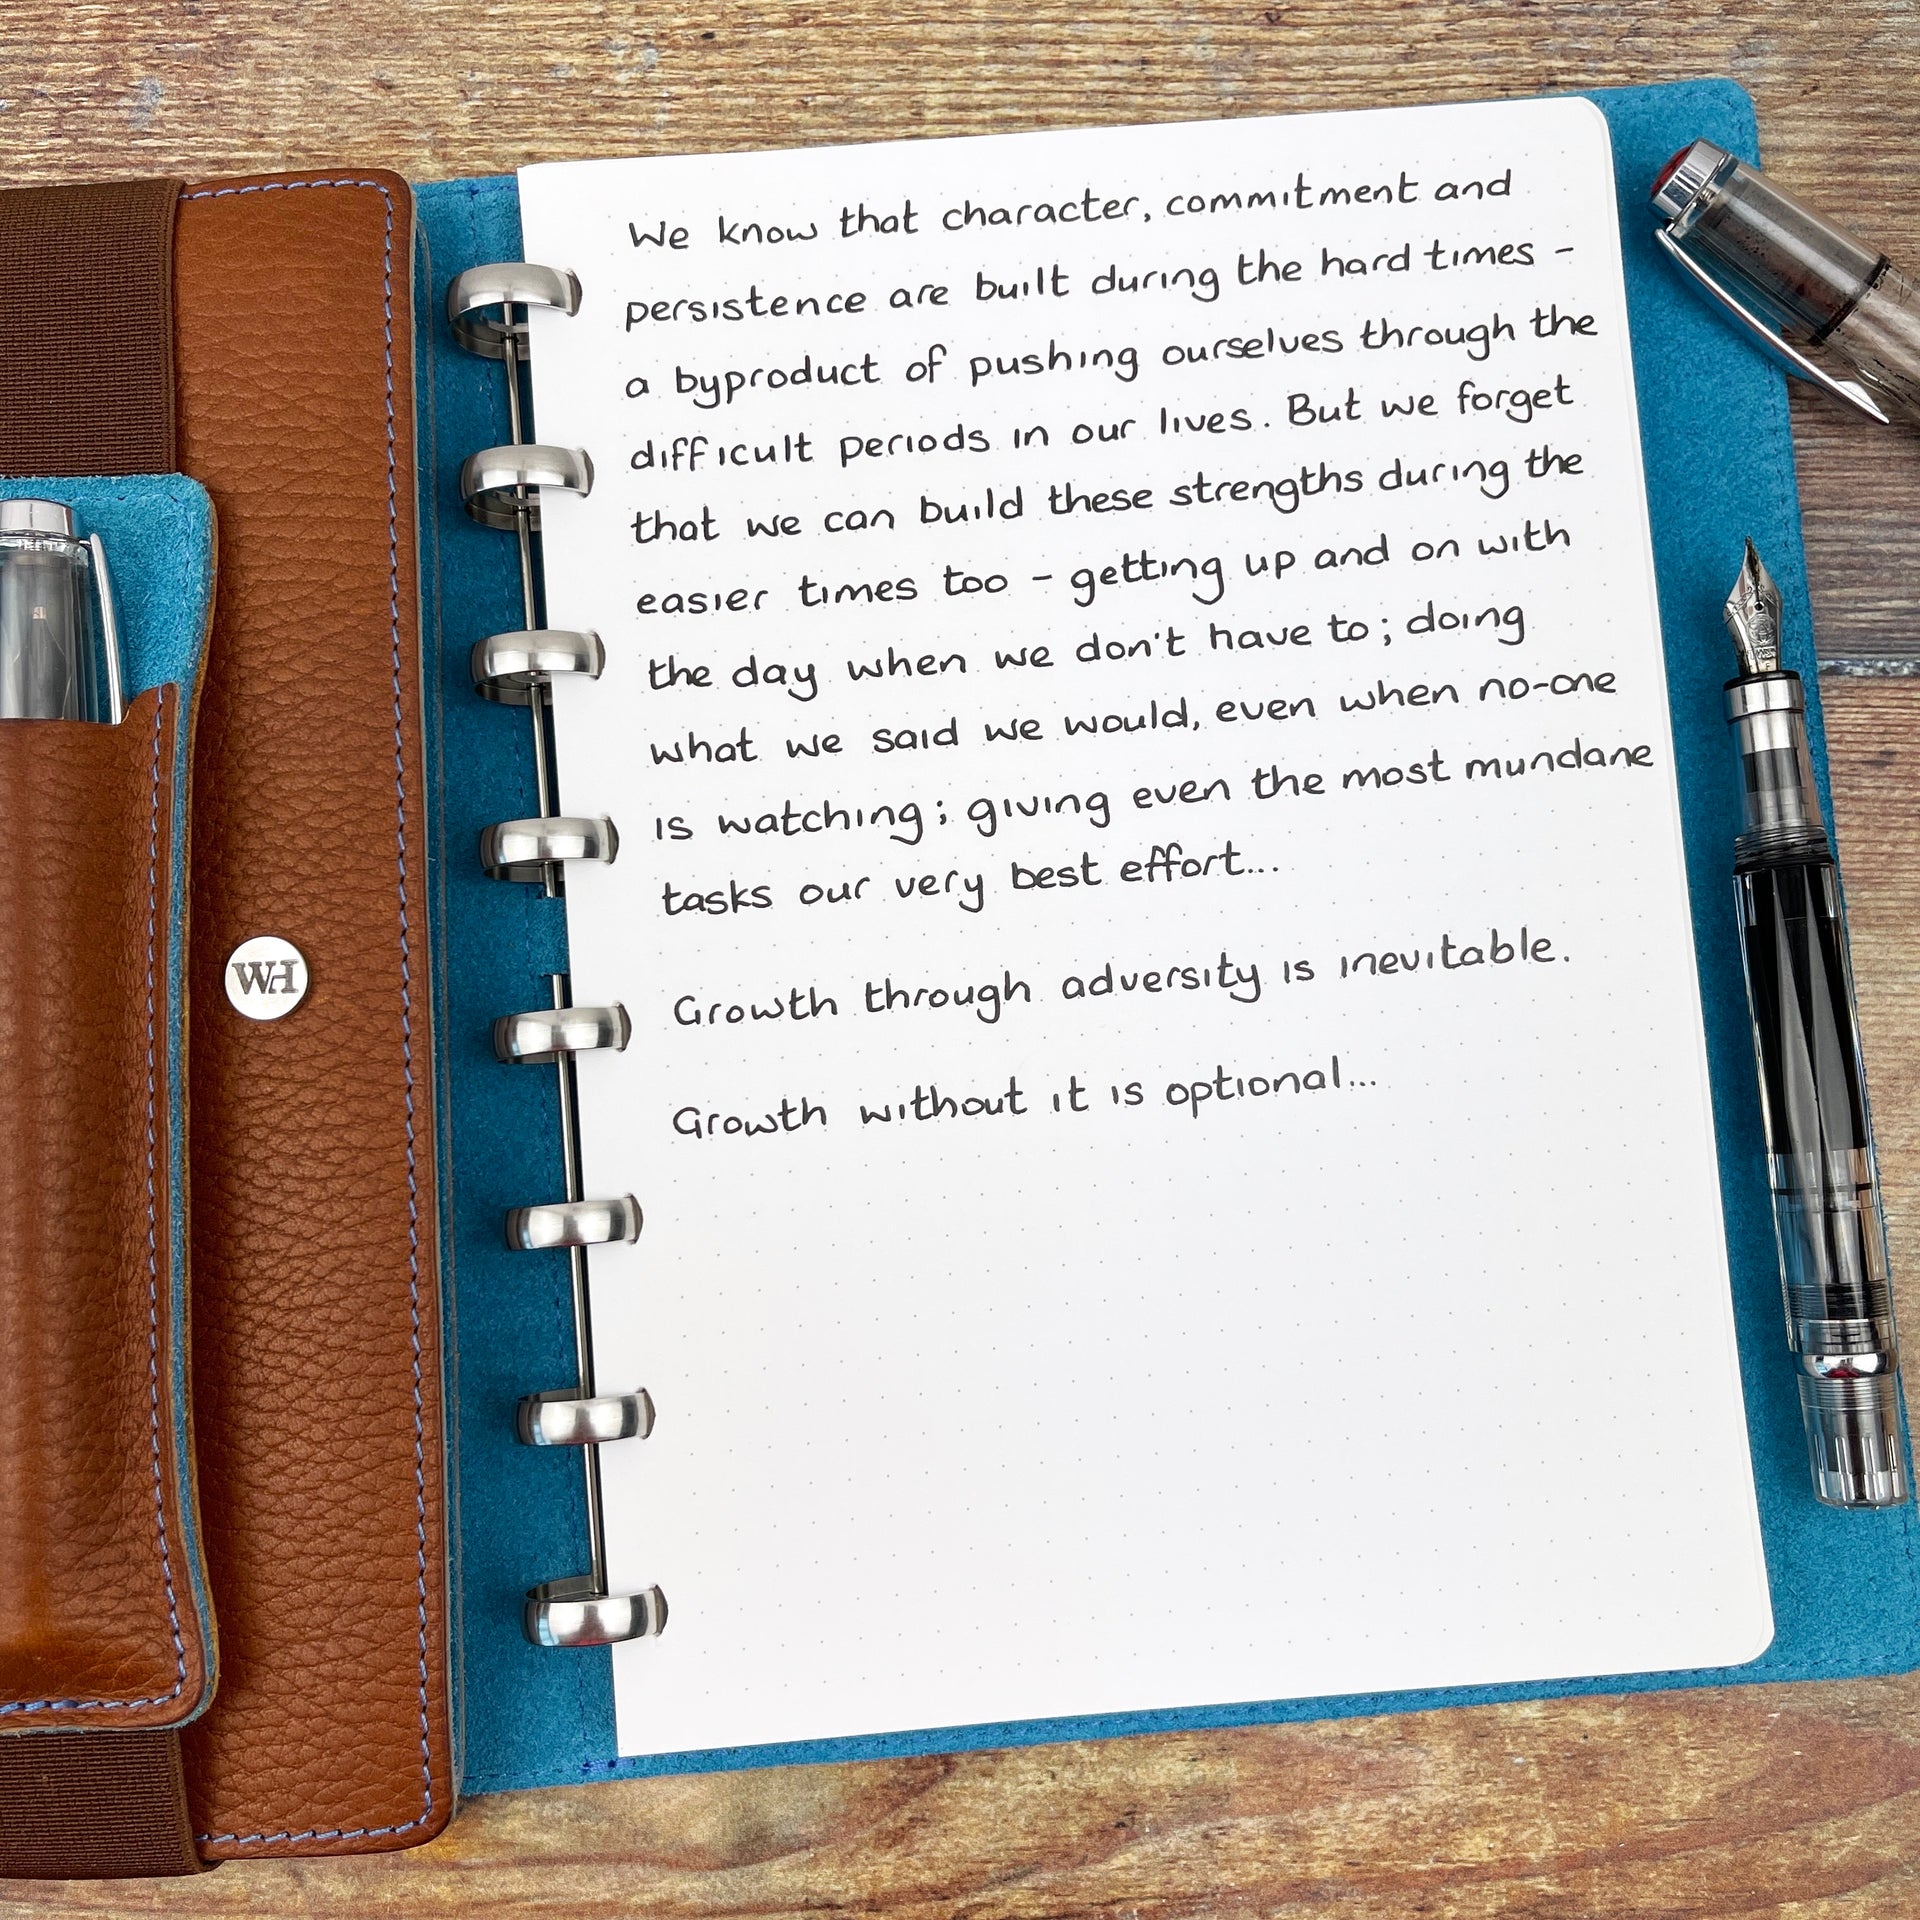 We know that character, commitment and
persistence are built during the hard times -
a byproduct of pushing ourselves through the
difficult periods in our lives. But we forget
that we can build these strengths during the
easier times too - getting up and on with
the day when we don't have to; doing
what we said we would, even when no-one
is watching; giving even the most mundane
tasks our very best effort...
Growth through adversity is inevitable.
Growth without it is optional...
WH